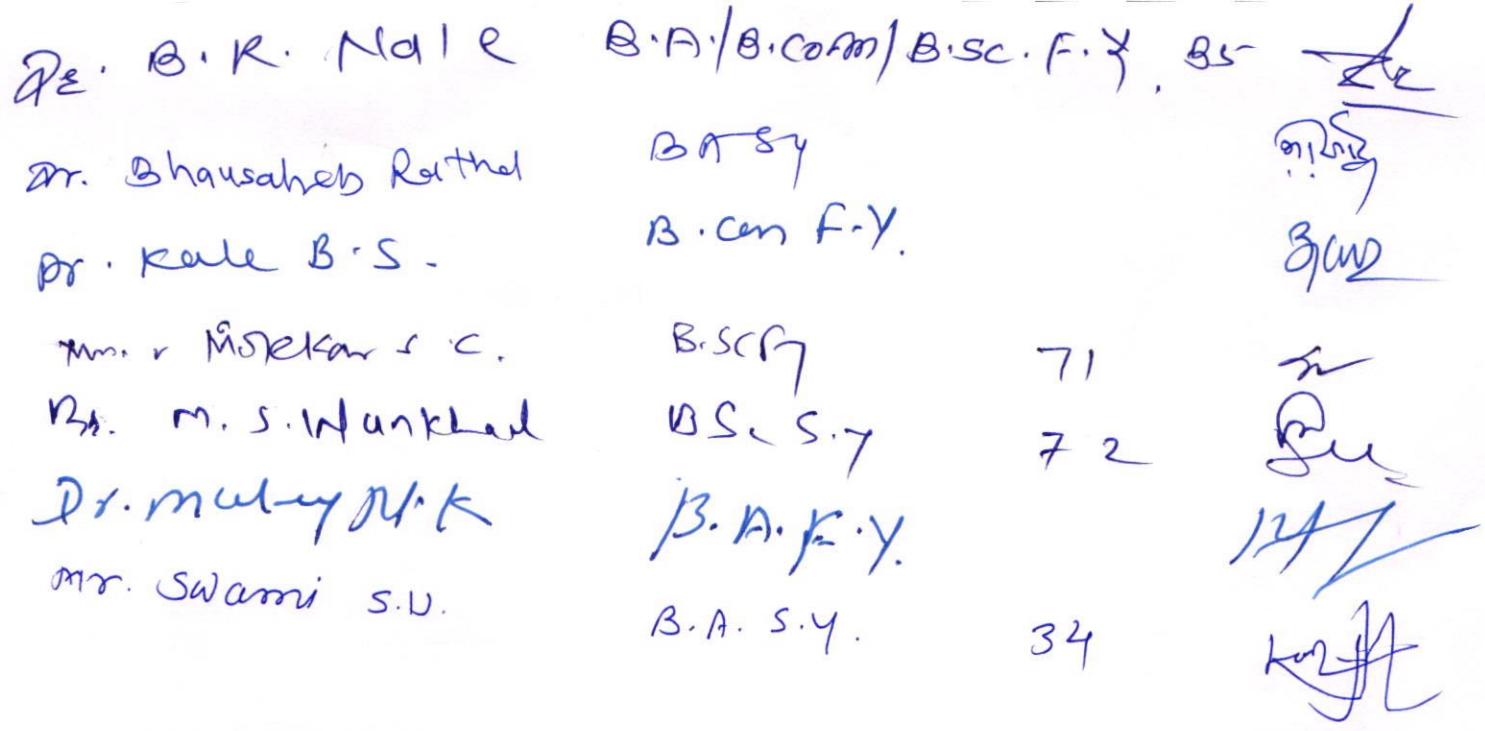 Dr. B.R. Nale B.A./B.com/B.sc. F.Y. 35
Dr. Bhausaheb Rathod BA SY
Dr. Kale B.S. B.Com F.Y.
S C. B.Sc 71
M. S. Wankhad BSc S.Y 72
Dr. Muley N.K B.A. F.Y.
Mr. Swami S.U. B.A. S.Y. 34